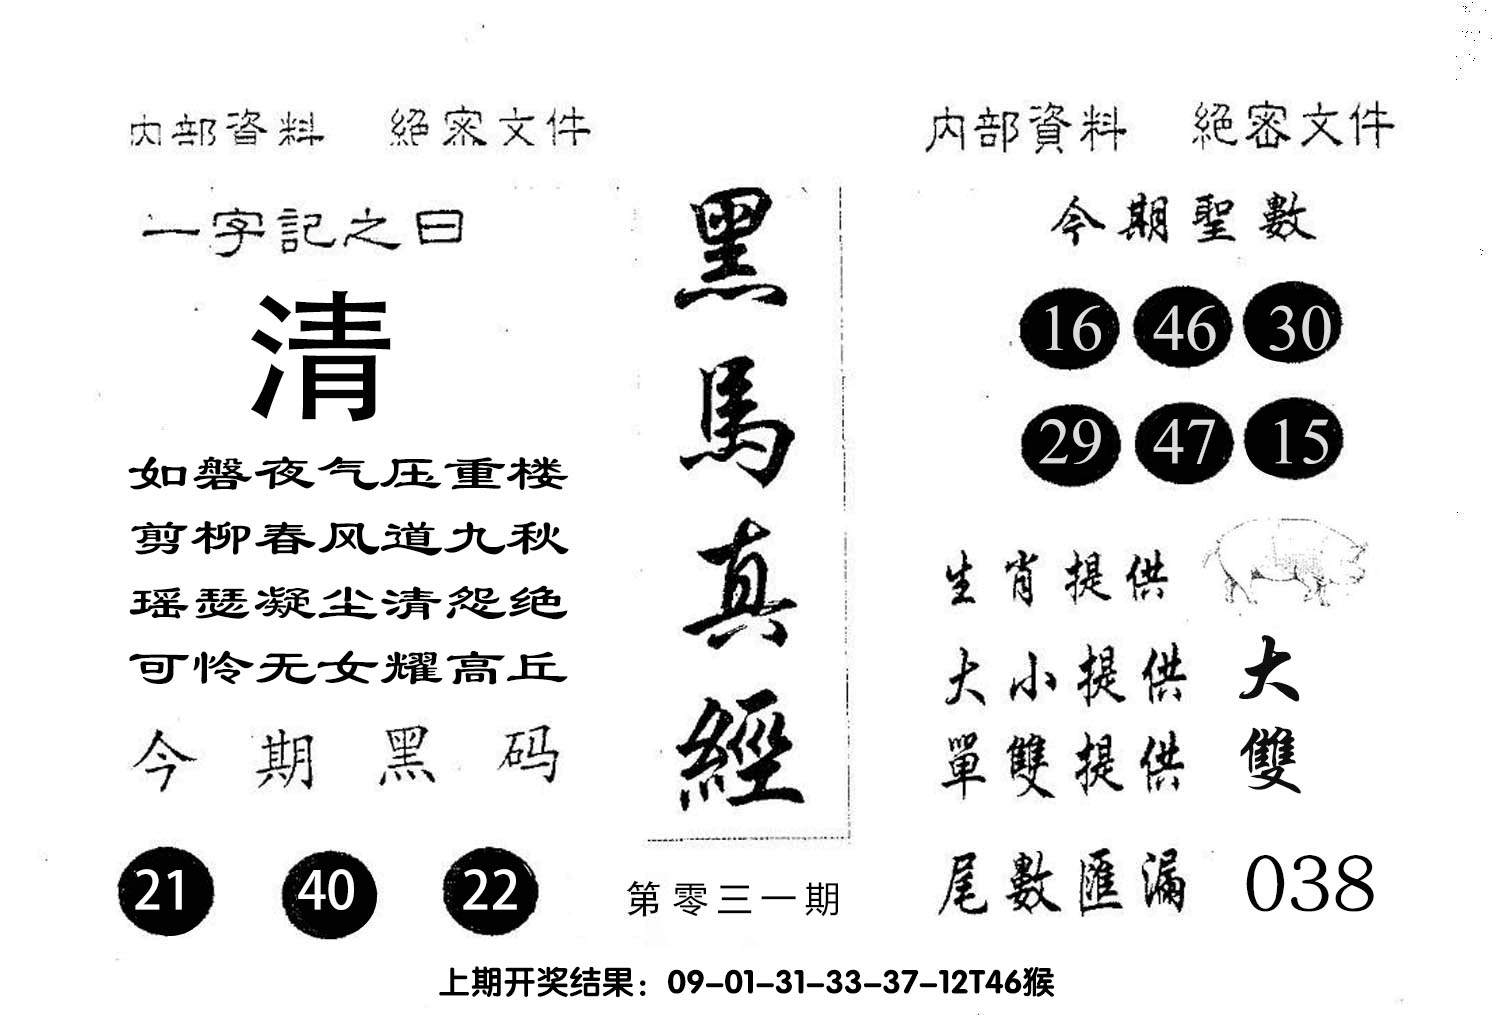 内部資料 絕密文件
一字記之曰
清
如磐夜气压重楼
剪柳春风道九秋
瑶瑟凝尘清怨绝
可怜无女耀高丘
今期黑码
21 40 22
黑馬真經
第零三一期
内部資料 絕密文件
今期聖數
16 46 30
29 47 15
生肖提供
大小提供 大
單雙提供 雙
尾數匯漏 038
上期开奖结果：09-01-31-33-37-12T46猴